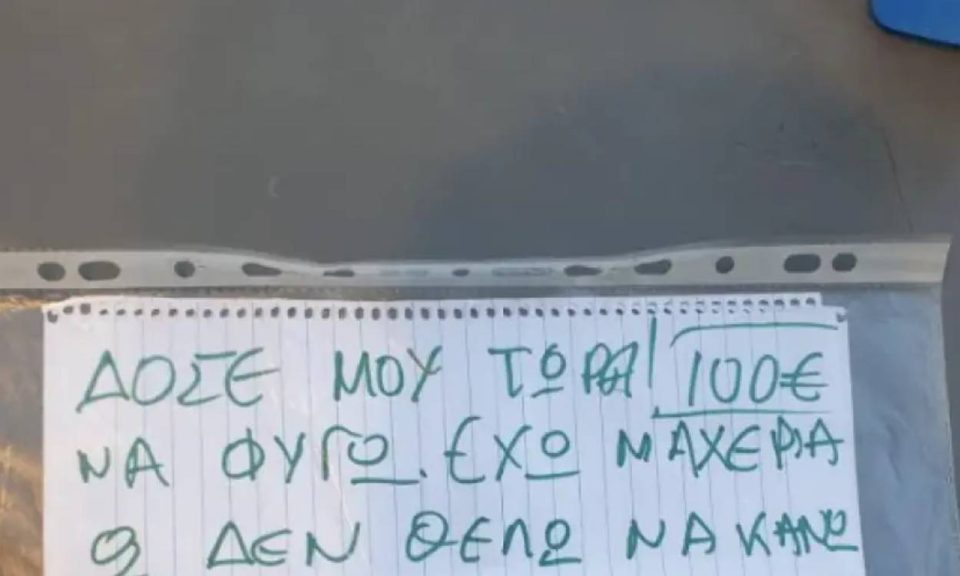 ΔΟΣΕ ΜΟΥ ΤΩΡΑ 100€
ΝΑ ΦΥΓΩ. ΕΧΩ ΜΑΧΕΡΙΑ
ΔΕΝ ΘΕΛΩ ΝΑ ΚΑΝΩ